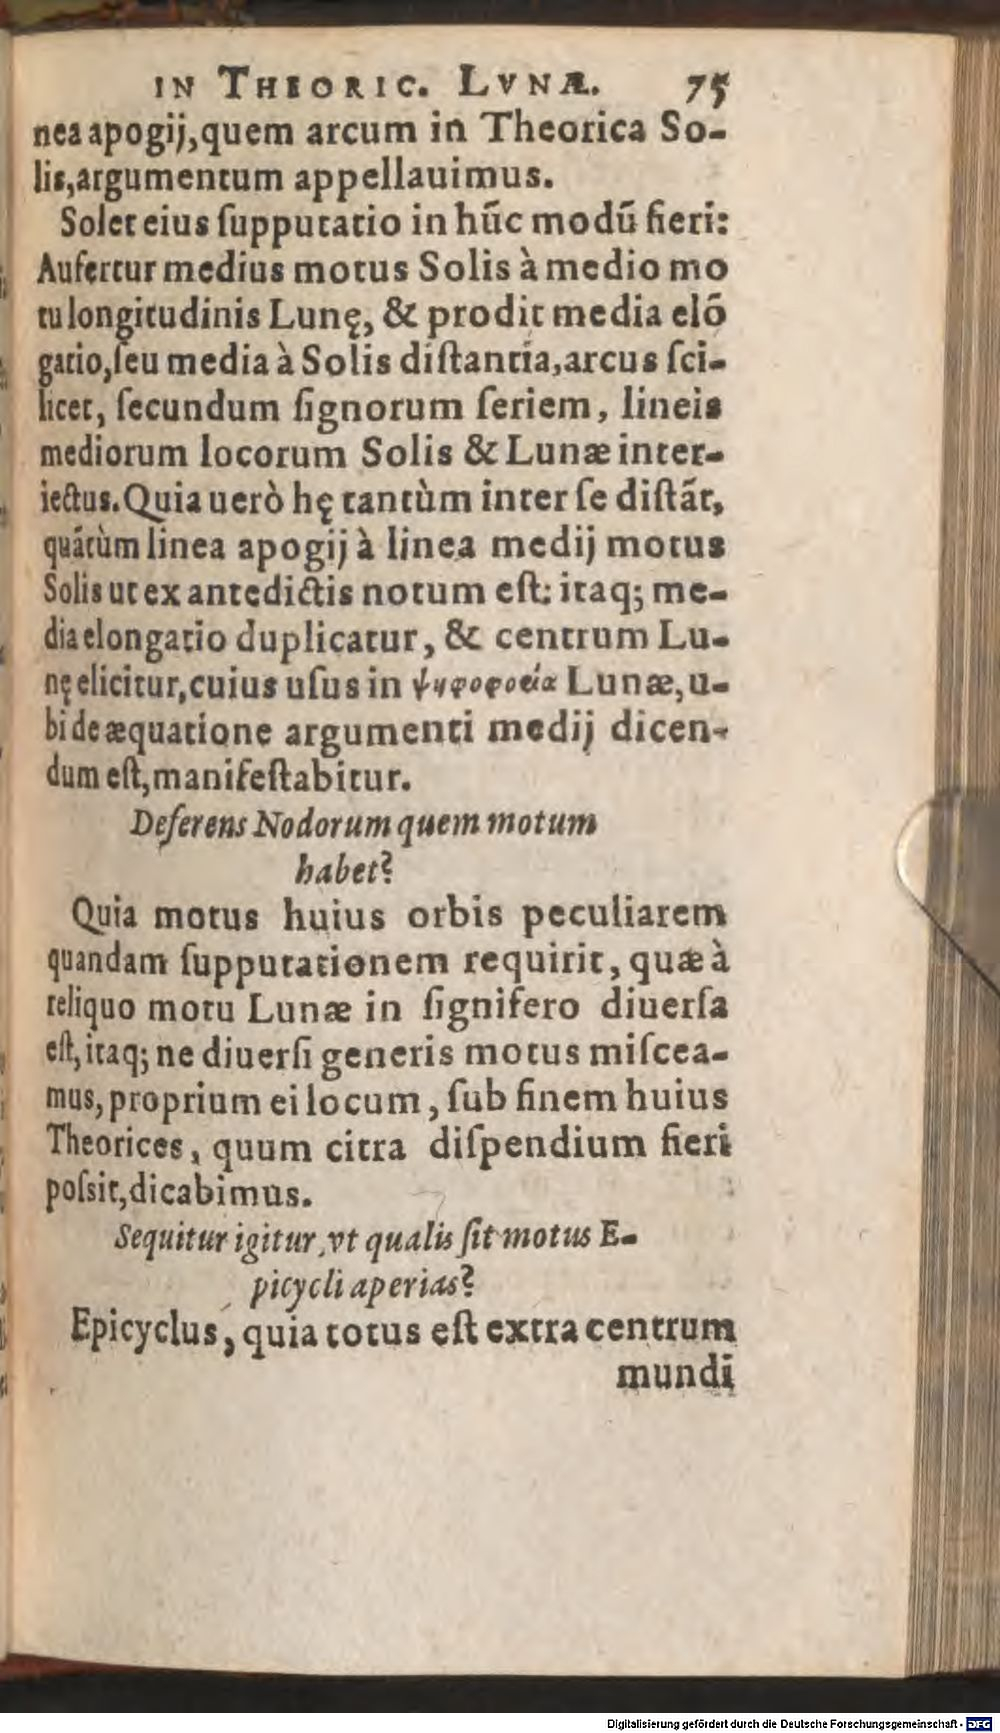 IN THEORIC. LVNÆ. 75
nea apogij, quem arcum in Theorica So-
lis, argumentum appellauimus.
Solet eius ſupputatio in hūc modū fieri:
Aufertur medius motus Solis à medio mo
tu longitudinis Lunę, & prodit media elō
gatio, ſeu media à Solis diſtantia, arcus ſci-
licet, ſecundum ſignorum ſeriem, lineis
mediorum locorum Solis & Lunæ inter-
iectus. Quia uerò hę tantùm inter ſe diſtāt,
quātùm linea apogij à linea medij motus
Solis ut ex antedictis notum eſt: itaq; me-
dia elongatio duplicatur, & centrum Lu-
nę elicitur, cuius uſus in ψηφοφορία Lunæ, u-
bi de æquatione argumenti medij dicen-
dum eſt, manifeſtabitur.
Deferens Nodorum quem motum
habet?
Quia motus huius orbis peculiarem
quandam ſupputationem requirit, quæ à
reliquo motu Lunæ in ſignifero diuerſa
eſt, itaq; ne diuerſi generis motus miſcea-
mus, proprium ei locum, ſub finem huius
Theorices, quum citra diſpendium fieri
poſsit, dicabimus.
Sequitur igitur, vt qualis ſit motus E-
picycli aperias?
Epicyclus, quia totus eſt extra centrum
mundi
Digitalisierung gefördert durch die Deutsche Forschungsgemeinschaft - DFG